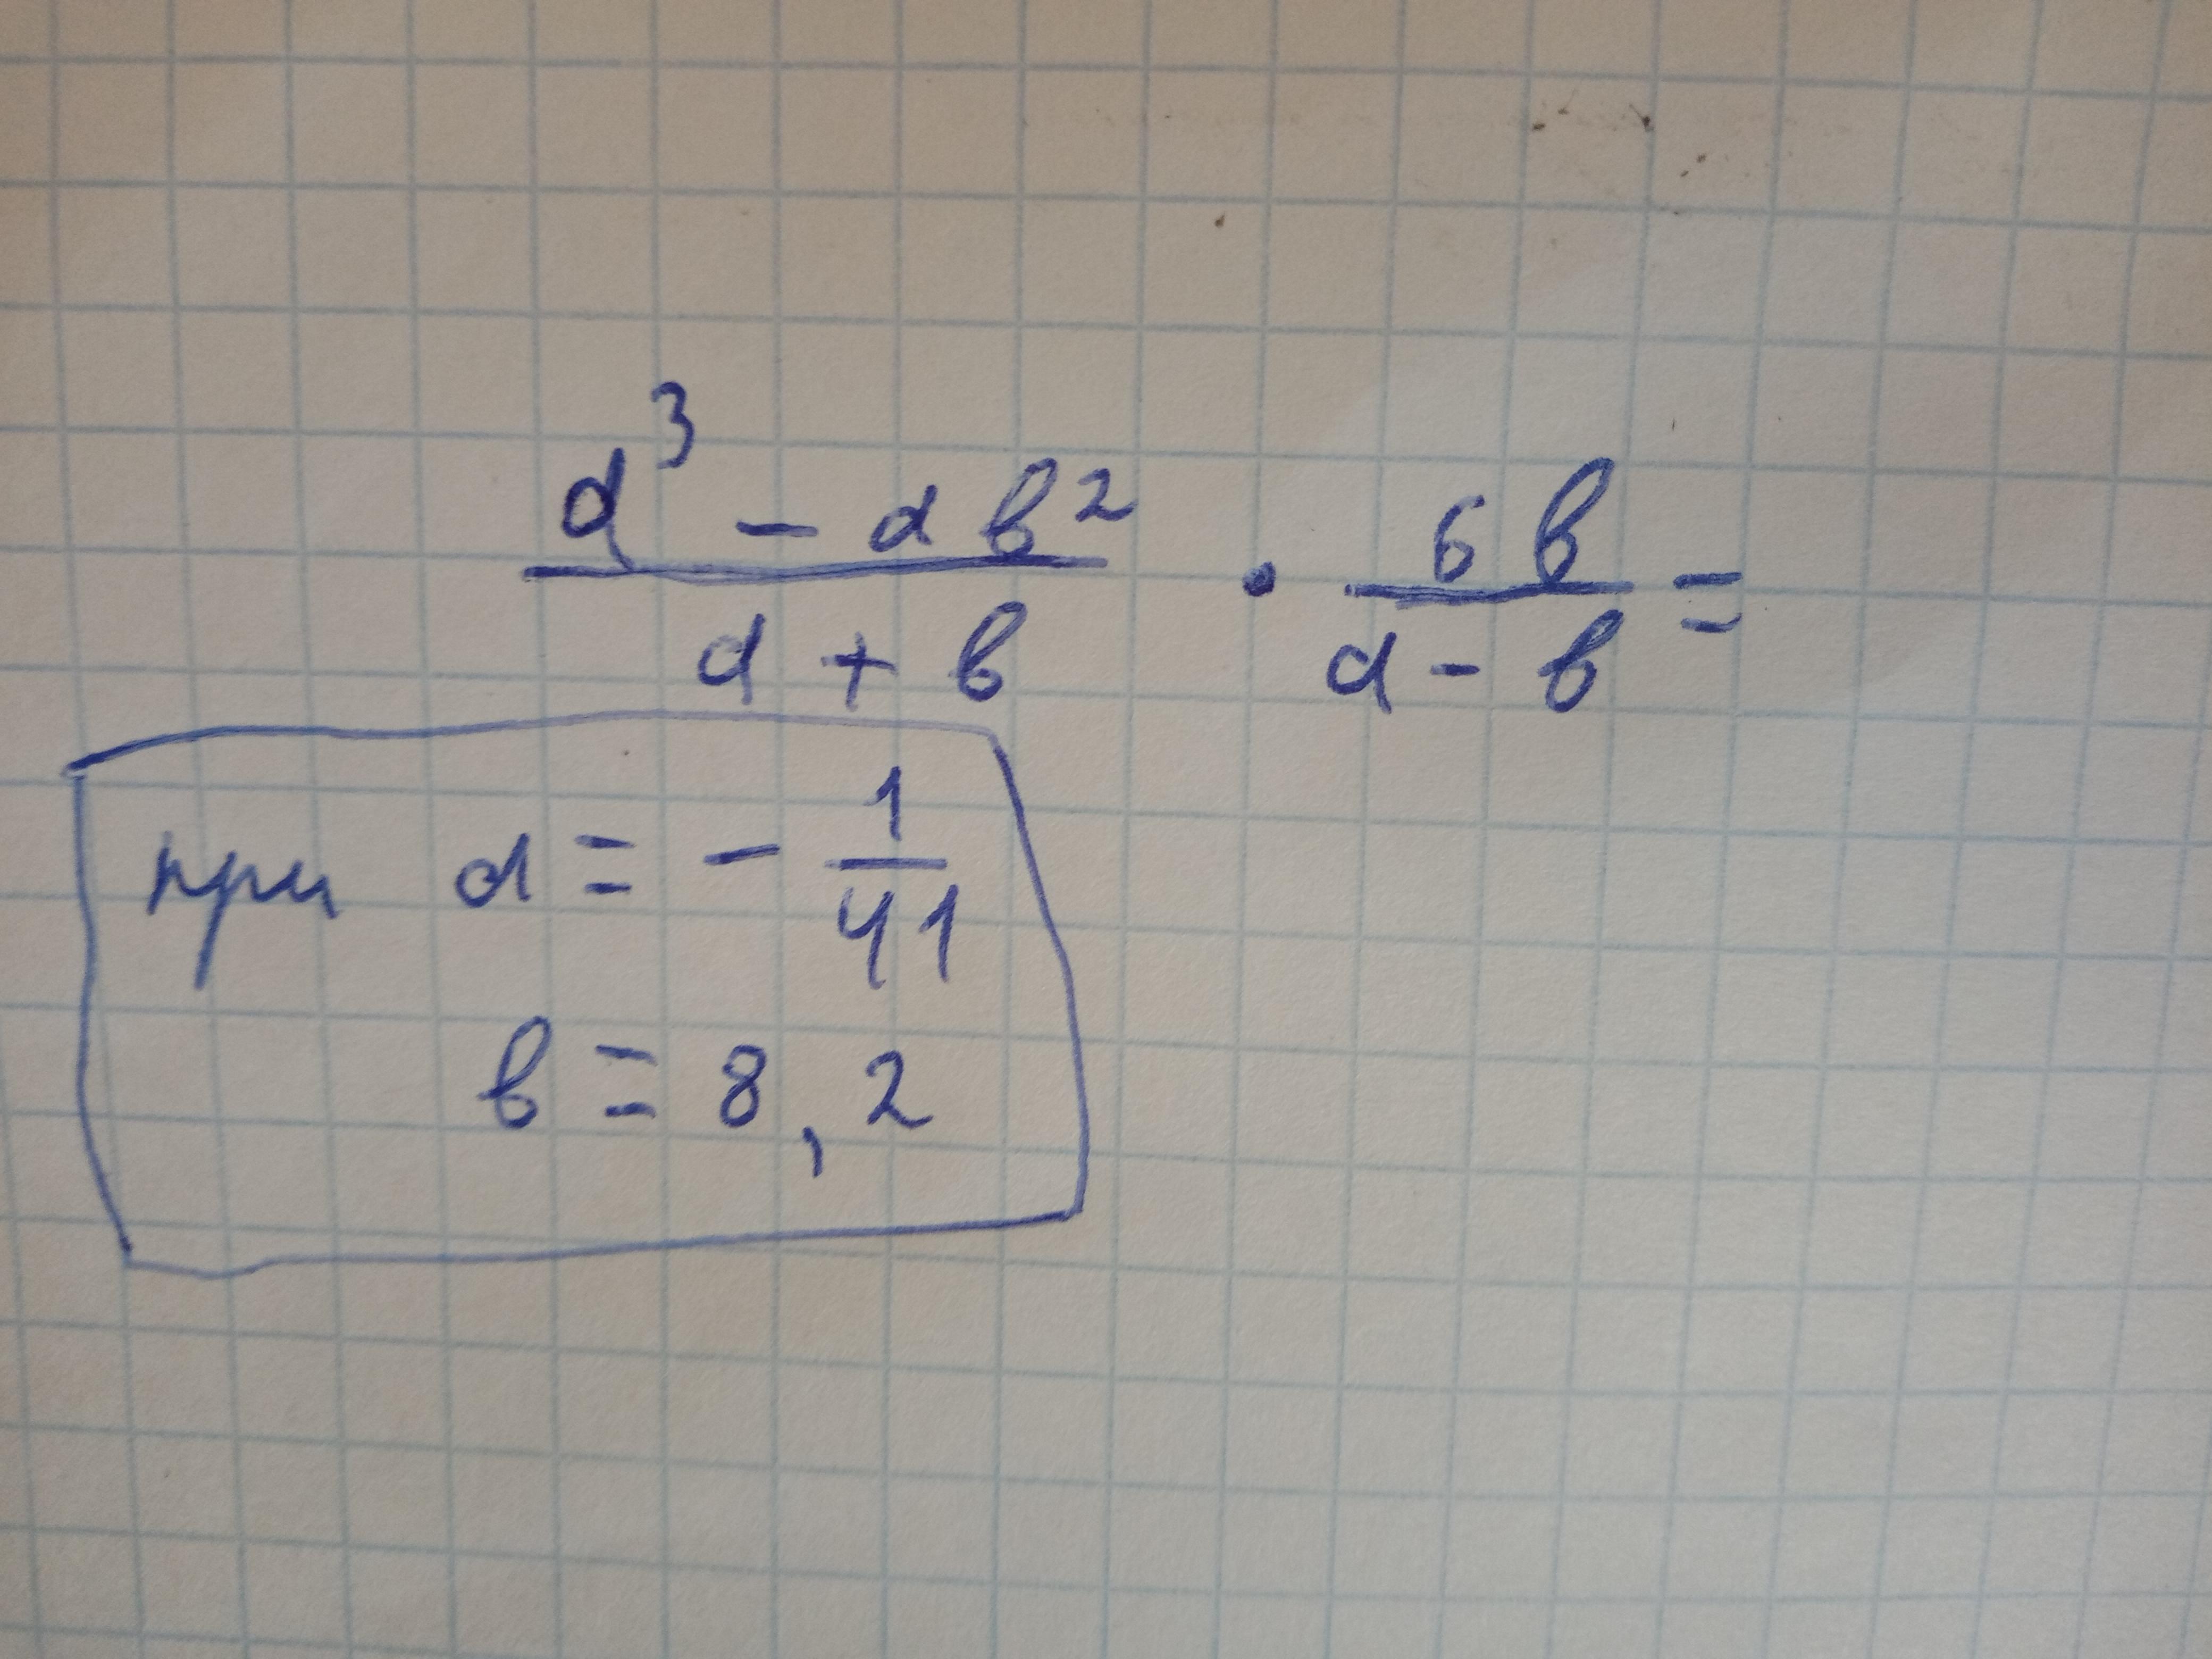 a³ - ab² / a + b · 6b / a - b =
при a = - 1/41
b = 8,2